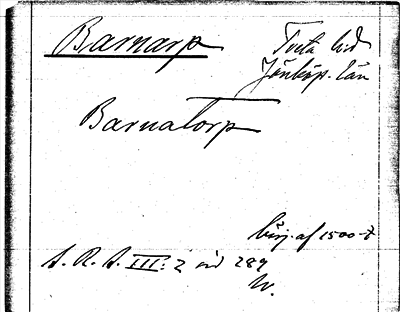 Barnarp
Tveta hd
Jönköp. län
Barnatorp
börj. af 1500-t
S. R. A. III: 2 sid 289
W.